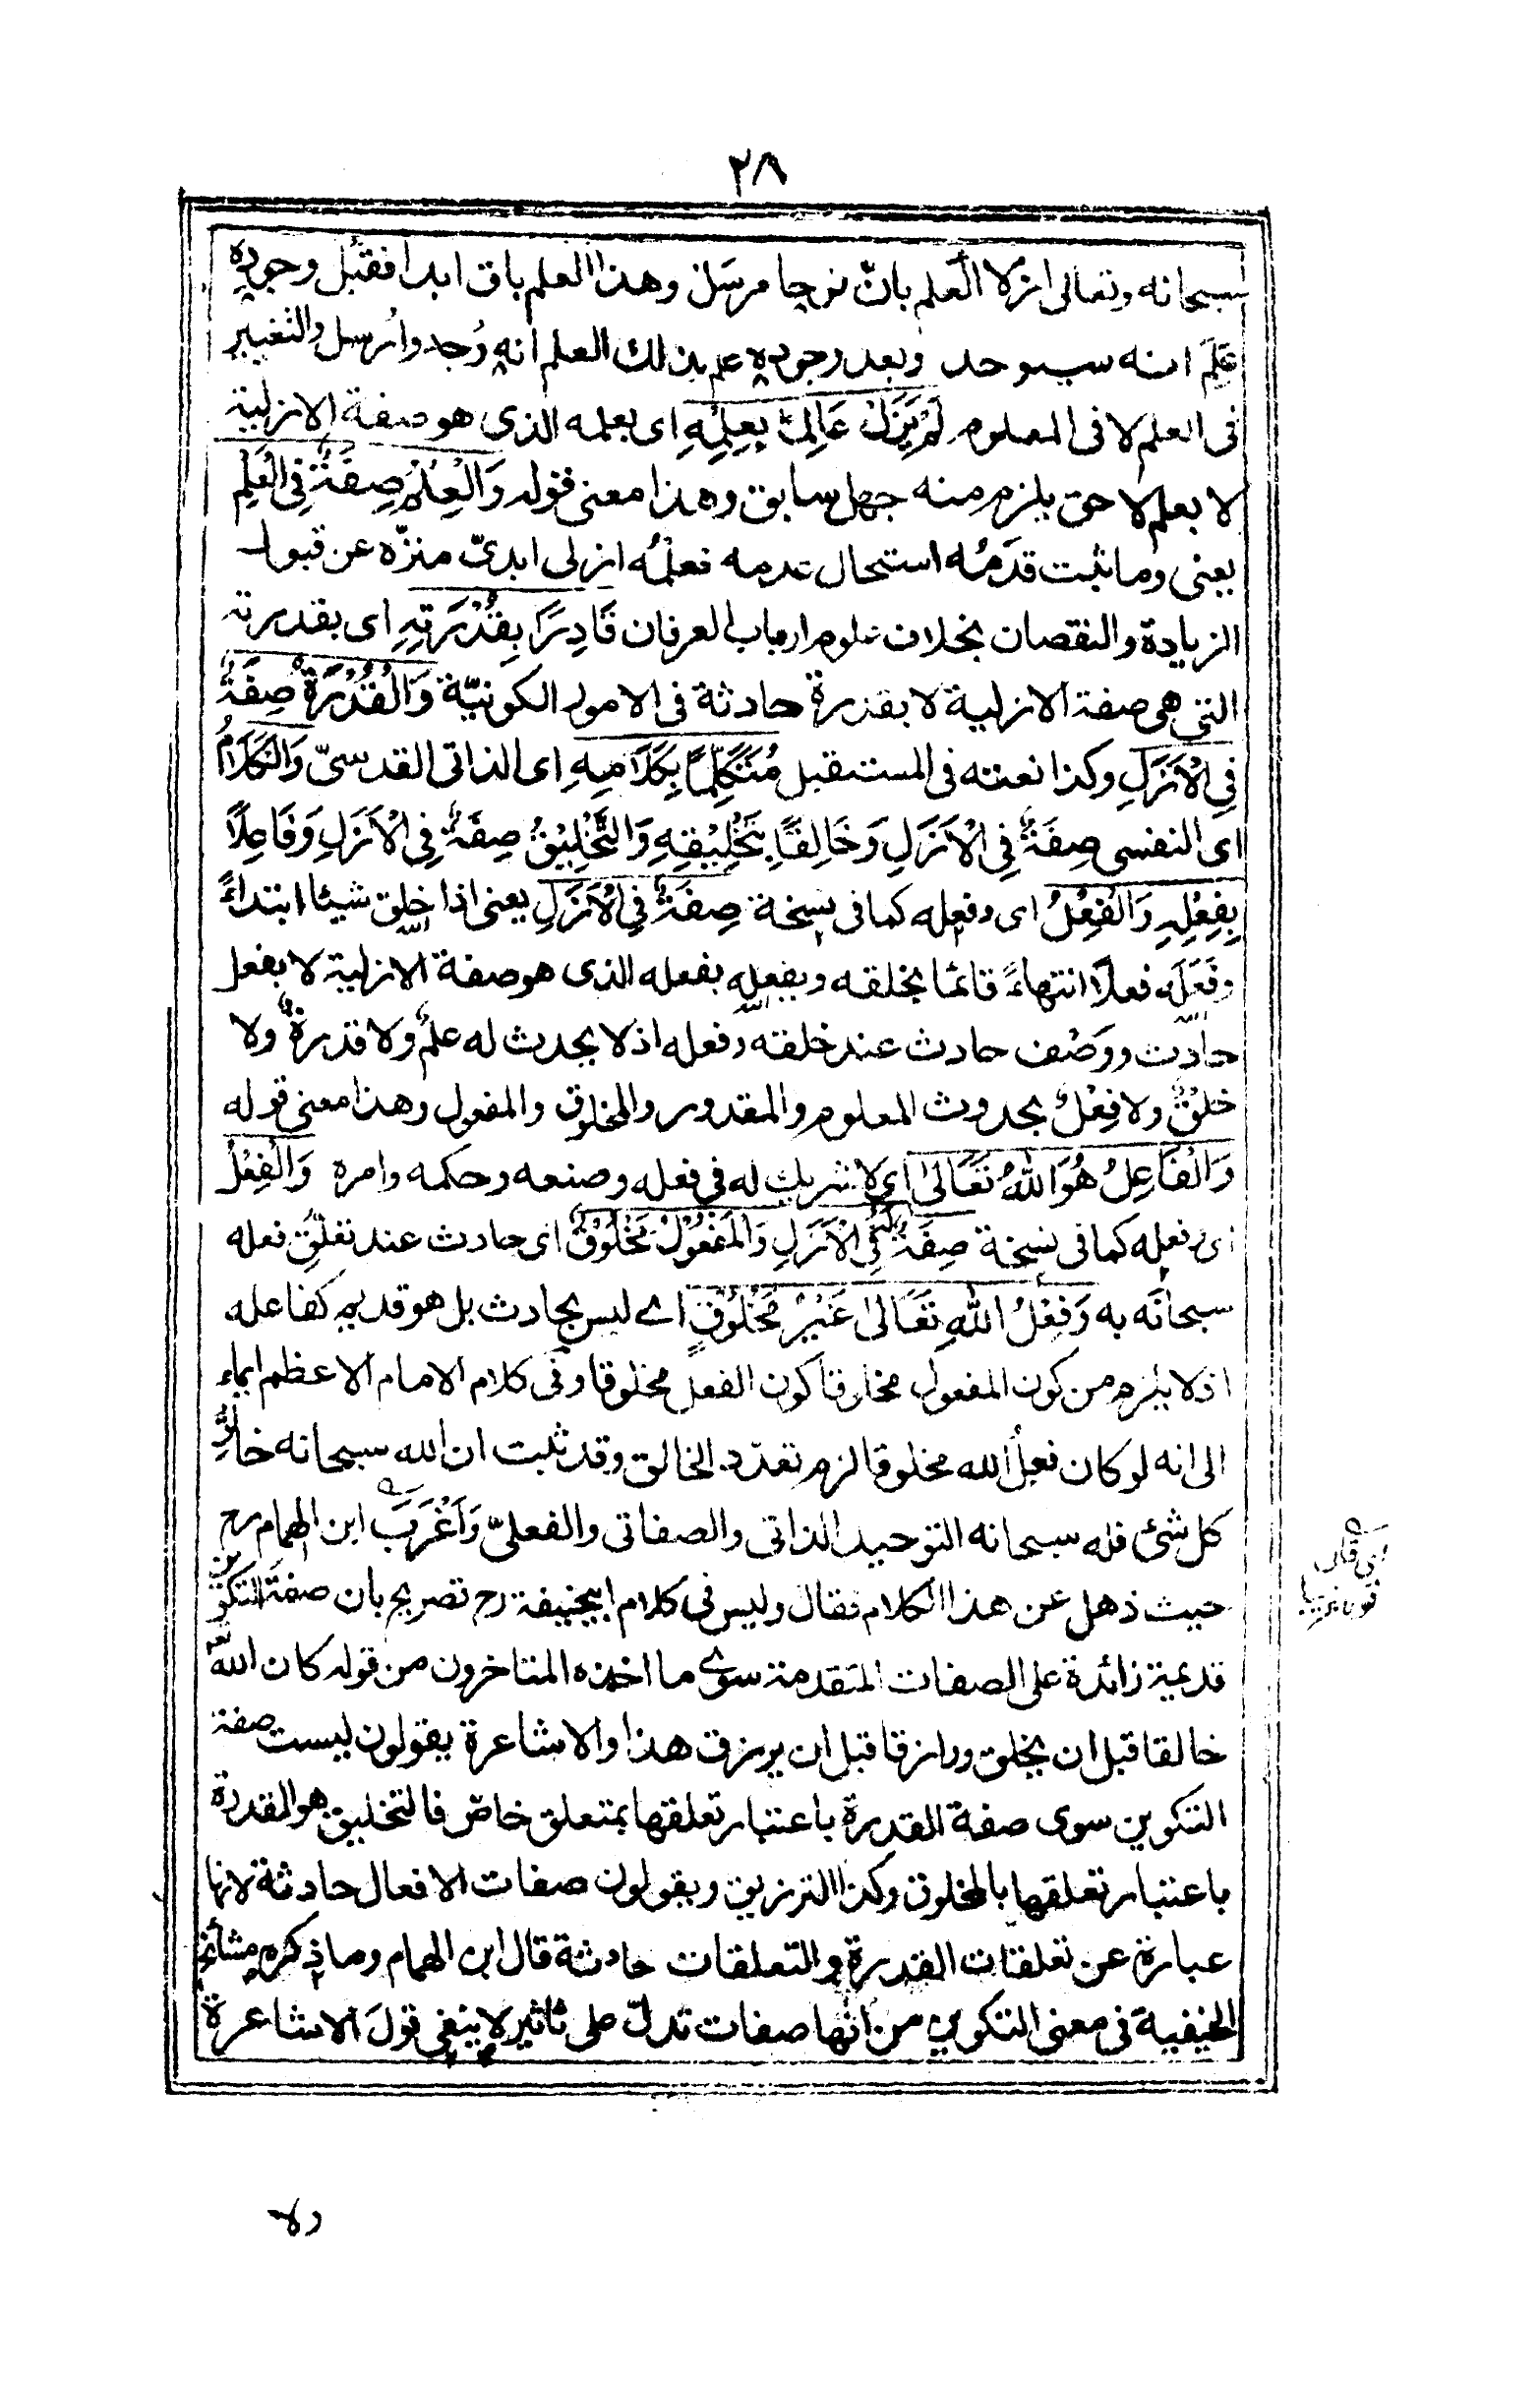 ٢٨
سبحانه وتعالى ازلا العلم بانّ نوحا مرسَل وهذا العلم باق ابدا فقبل وجوده
عَلِمَ انه سيوجد وبعد وجوده علم بذلك العلم انه وُجد واُرسل والتغيير
فى العلم لا فى المعلوم لَمْ يَزَلْ عَالِمًا بِعِلْمِهِ اى بعلمه الذى هو صفة الازلية
لا بعلم لاحق يلزم منه جهل سابق وهذا معنى قوله وَالْعِلْمُ صِفَةٌ فِى الْعِلْمِ
يعنى وما ثبت قدَمُه استحال عدمه فعلمُه ازلى ابدىّ منزّه عن قبول
الزيادة والنقصان بخلاف علوم ارباب العرفان قَادِرًا بِقُدْرَتِهِ اى بقدرته
التى هى صفة الازلية لا بقدرة حادثة فى الامور الكونيّة وَالْقُدْرَةُ صِفَةٌ
فِى الْاَزَلِ وكذا نعته فى المستقبل مُتَكَلِّمًا بِكَلَامِهِ اى الذاتى القدسىّ وَالْكَلَامُ
اى النفسى صِفَةٌ فِى الْاَزَلِ وَخَالِقًا بِتَخْلِيْقِهِ وَالتَّخْلِيْقُ صِفَةٌ فِى الْاَزَلِ وَفَاعِلًا
بِفِعْلِهِ وَالْفِعْلُ اى وفعله كما فى نسخة صِفَةٌ فِى الْاَزَلِ يعنى اذا خلق شيئا ابتداءً
وفَعَلَه فعلًا انتهاءً قائما بخلقه وبفعله بفعله الذى هو صفة الازلية لا بفعل
حادث ووصف حادث عند خلقته وفعله اذ لا يحدث له علمٌ ولا قدرةٌ ولا
خلقٌ ولا فِعْلٌ بحدوث المعلوم والمقدور والمخلوق والمفعول وهذا معنى قوله
وَالْفَاعِلُ هُوَ اللهُ تَعَالىٰ اى لا شريك له فى فعله وصنعه وحكمه وامره وَالْفِعْلُ
اى وفعله كما فى نسخة صِفَةٌ فِى الْاَزَلِ وَالْمَفْعُوْلُ مَخْلُوْقٌ اى حادث عند تعلّق فعله
سبحانَه به وَفِعْلُ اللهِ تَعَالىٰ غَيْرُ مَخْلُوْقٍ اے ليس بحادث بل هو قديم كفاعله
اذ لا يلزم من كون المفعول مخلوقا كون الفعل مخلوقا وفى كلام الامام الاعظم ايماء
الى انه لو كان فعلُ الله مخلوقا لزم تعدّد الخالق وقد ثبت ان الله سبحانه خالقُ
كل شئ فله سبحانه التوحيد الذاتى والصفاتى والفعلىّ وَاَغْرَبَ ابن الهمام رح
حيث ذهل عن هذا الكلام فقال وليس فى كلام ابيحنيفة رح تصريح بان صفة التكوين
قديمة زائدة على الصفات المتقدمة سوے ما اخذه المتاخرون من قوله كان اللّه تع
خالقا قبل ان يخلق ورازقا قبل ان يرزق هذا والاشاعرة يقولون ليست صفة
التكوين سوى صفة القدرة باعتبار تعلقها بمتعلق خاصّ فالتخليق هو القدرة
باعتبار تعلقها بالمخلوق وكذا الترزيق ويقولون صفات الافعال حادثة لانها
عبارة عن تعلقات القدرة والتعلقات حادثة قال ابن الهمام وما ذكره مشائخ
الحنيفية فى معنى التكوين من انها صفات تدلّ على تاثير لا ينفى قولَ الاشاعرة
اى قال
قولا غريبا
ولا